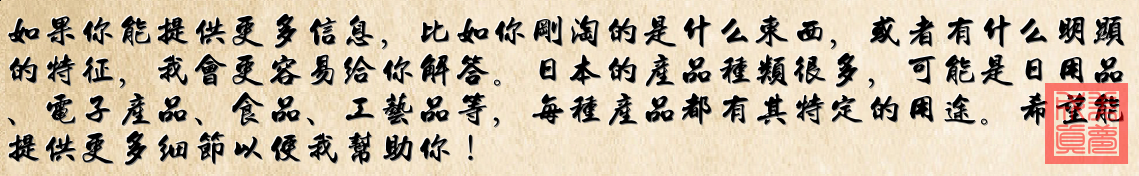 如果你能提供更多信息，比如你剛淘的是什么東西，或者有什么明顯
的特征，我會更容易給你解答。日本的產品種類很多，可能是日用品
、電子產品、食品、工藝品等，每種產品都有其特定的用途。希望能
提供更多细節以便我幫助你！